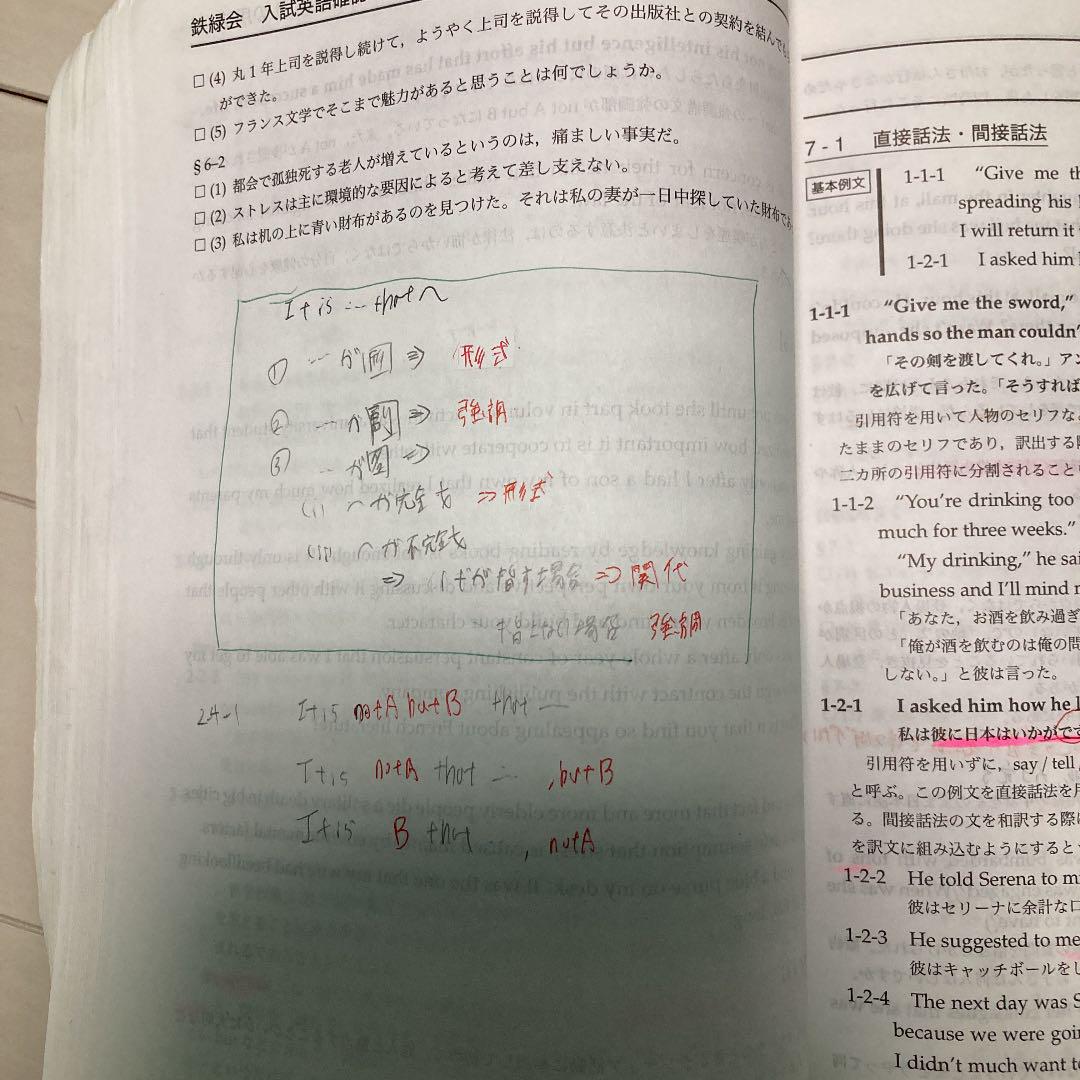 鉄緑会 入試英語確認
□ (4) 丸1年上司を説得し続けて，ようやく上司を説得してその出版社との契約を結んで
ができた。
□ (5) フランス文学でそこまで魅力があると思うことは何でしょうか。
§6-2
□ (1) 都会で孤独死する老人が増えているというのは，痛ましい事実だ。
□ (2) ストレスは主に環境的な要因によると考えて差し支えない。
□ (3) 私は机の上に青い財布があるのを見つけた。それは私の妻が一日中探していた財布で
It is … that ～
① … が 形 ⇒ 形式
② … が 副 ⇒ 強調
③ … が 名 ⇒
(i) ～が完全文 ⇒ 形式
(ii) ～が不完全
⇒ が指す場合 ⇒ 関代
指さない場合 強調
24-1 It is not A but B that …
It is not A that … , but B
It is B that , not A
7-1 直接話法・間接話法
基本例文
1-1-1 “Give me th
spreading his
I will return it
1-2-1 I asked him
1-1-1 “Give me the sword,”
hands so the man couldn’
「その剣を渡してくれ。」アン
を広げて言った。「そうすれば
引用符を用いて人物のセリフな
たままのセリフであり，訳出する際
二カ所の引用符に分割されること
1-1-2 “You’re drinking too
much for three weeks.”
“My drinking,” he sai
business and I’ll mind
「あなた，お酒を飲み過ぎ
「俺が酒を飲むのは俺の問
しない。」と彼は言った。
1-2-1 I asked him how he l
私は彼に日本はいかがです
引用符を用いずに，say / tell /
と呼ぶ。この例文を直接話法を用
る。間接話法の文を和訳する際に
を訳文に組み込むようにすると
1-2-2 He told Serena to mi
彼はセリーナに余計な口
1-2-3 He suggested to me
彼はキャッチボールをし
1-2-4 The next day was S
because we were goin
I didn’t much want to